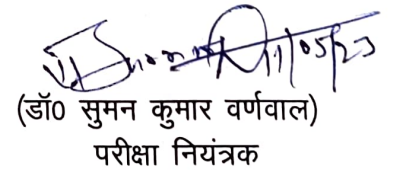 11/05/23
(डॉ0 सुमन कुमार वर्णवाल)
परीक्षा नियंत्रक